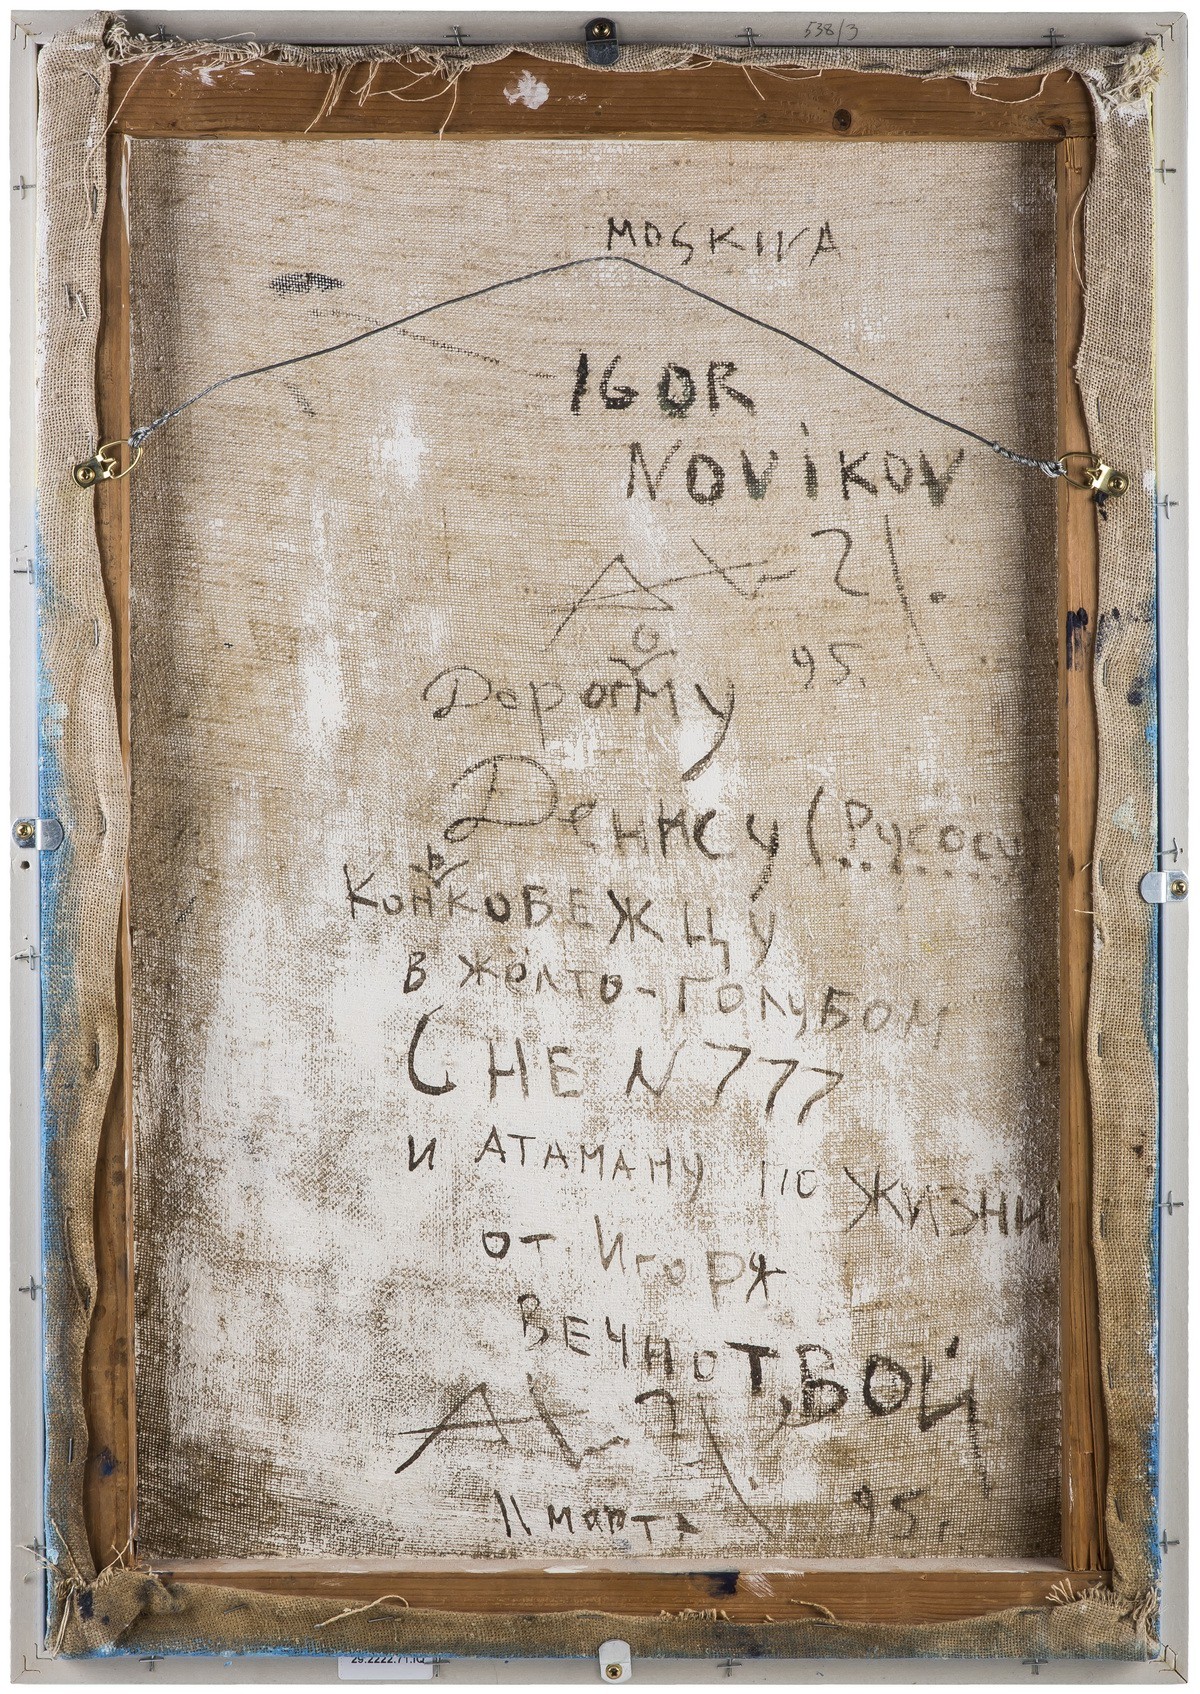 538/3
MOSKWA
IGOR
NOVIKOV
95.
Дорогому
Денису (Русоси
КОНЬКОБЕЖЦУ
В ЖЁЛТО-ГОЛУБОМ
СНЕ N 777
И АТАМАНУ ПО ЖИЗНИ
от Игоря
ВЕЧНО ТВОЙ
11 марта 95.
29.2222.71.IG